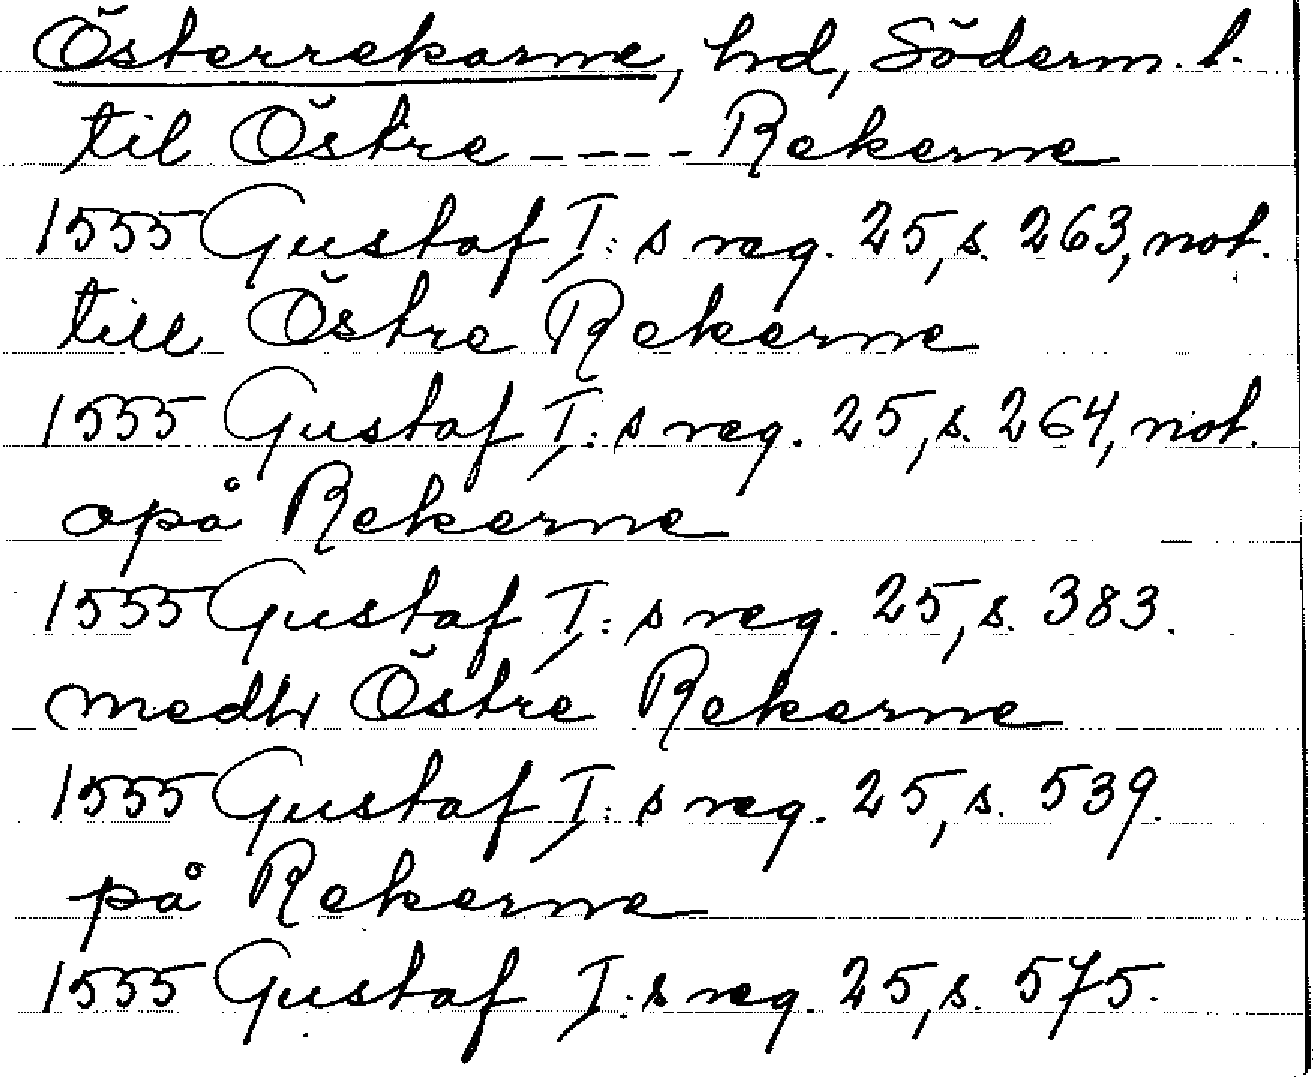 Österrekarne, hd, Söderm. l.
til Östre ---- Rekerne
1555 Gustaf I:s reg. 25, s. 263, not.
till Östre Rekerne
1555 Gustaf I:s reg. 25, s. 264, not.
opå Rekerne
1555 Gustaf I:s reg. 25, s. 383.
medh Östre Rekerne
1555 Gustaf I:s reg. 25, s. 539.
på Rekerne
1555 Gustaf I:s reg. 25, s. 575.